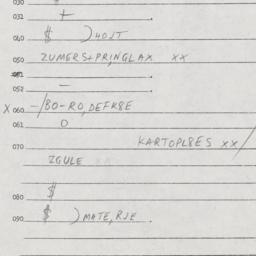 030
031 +
040 $ ) HOJT
050 ZUMERS+PRINGLAX XX
051
052 —
X 060 -/BO-RO, DEFK8E
061 O
070 KARTOPL8ES XX/
ZGULE XX
080 $
090 $ ) MATE, RJE